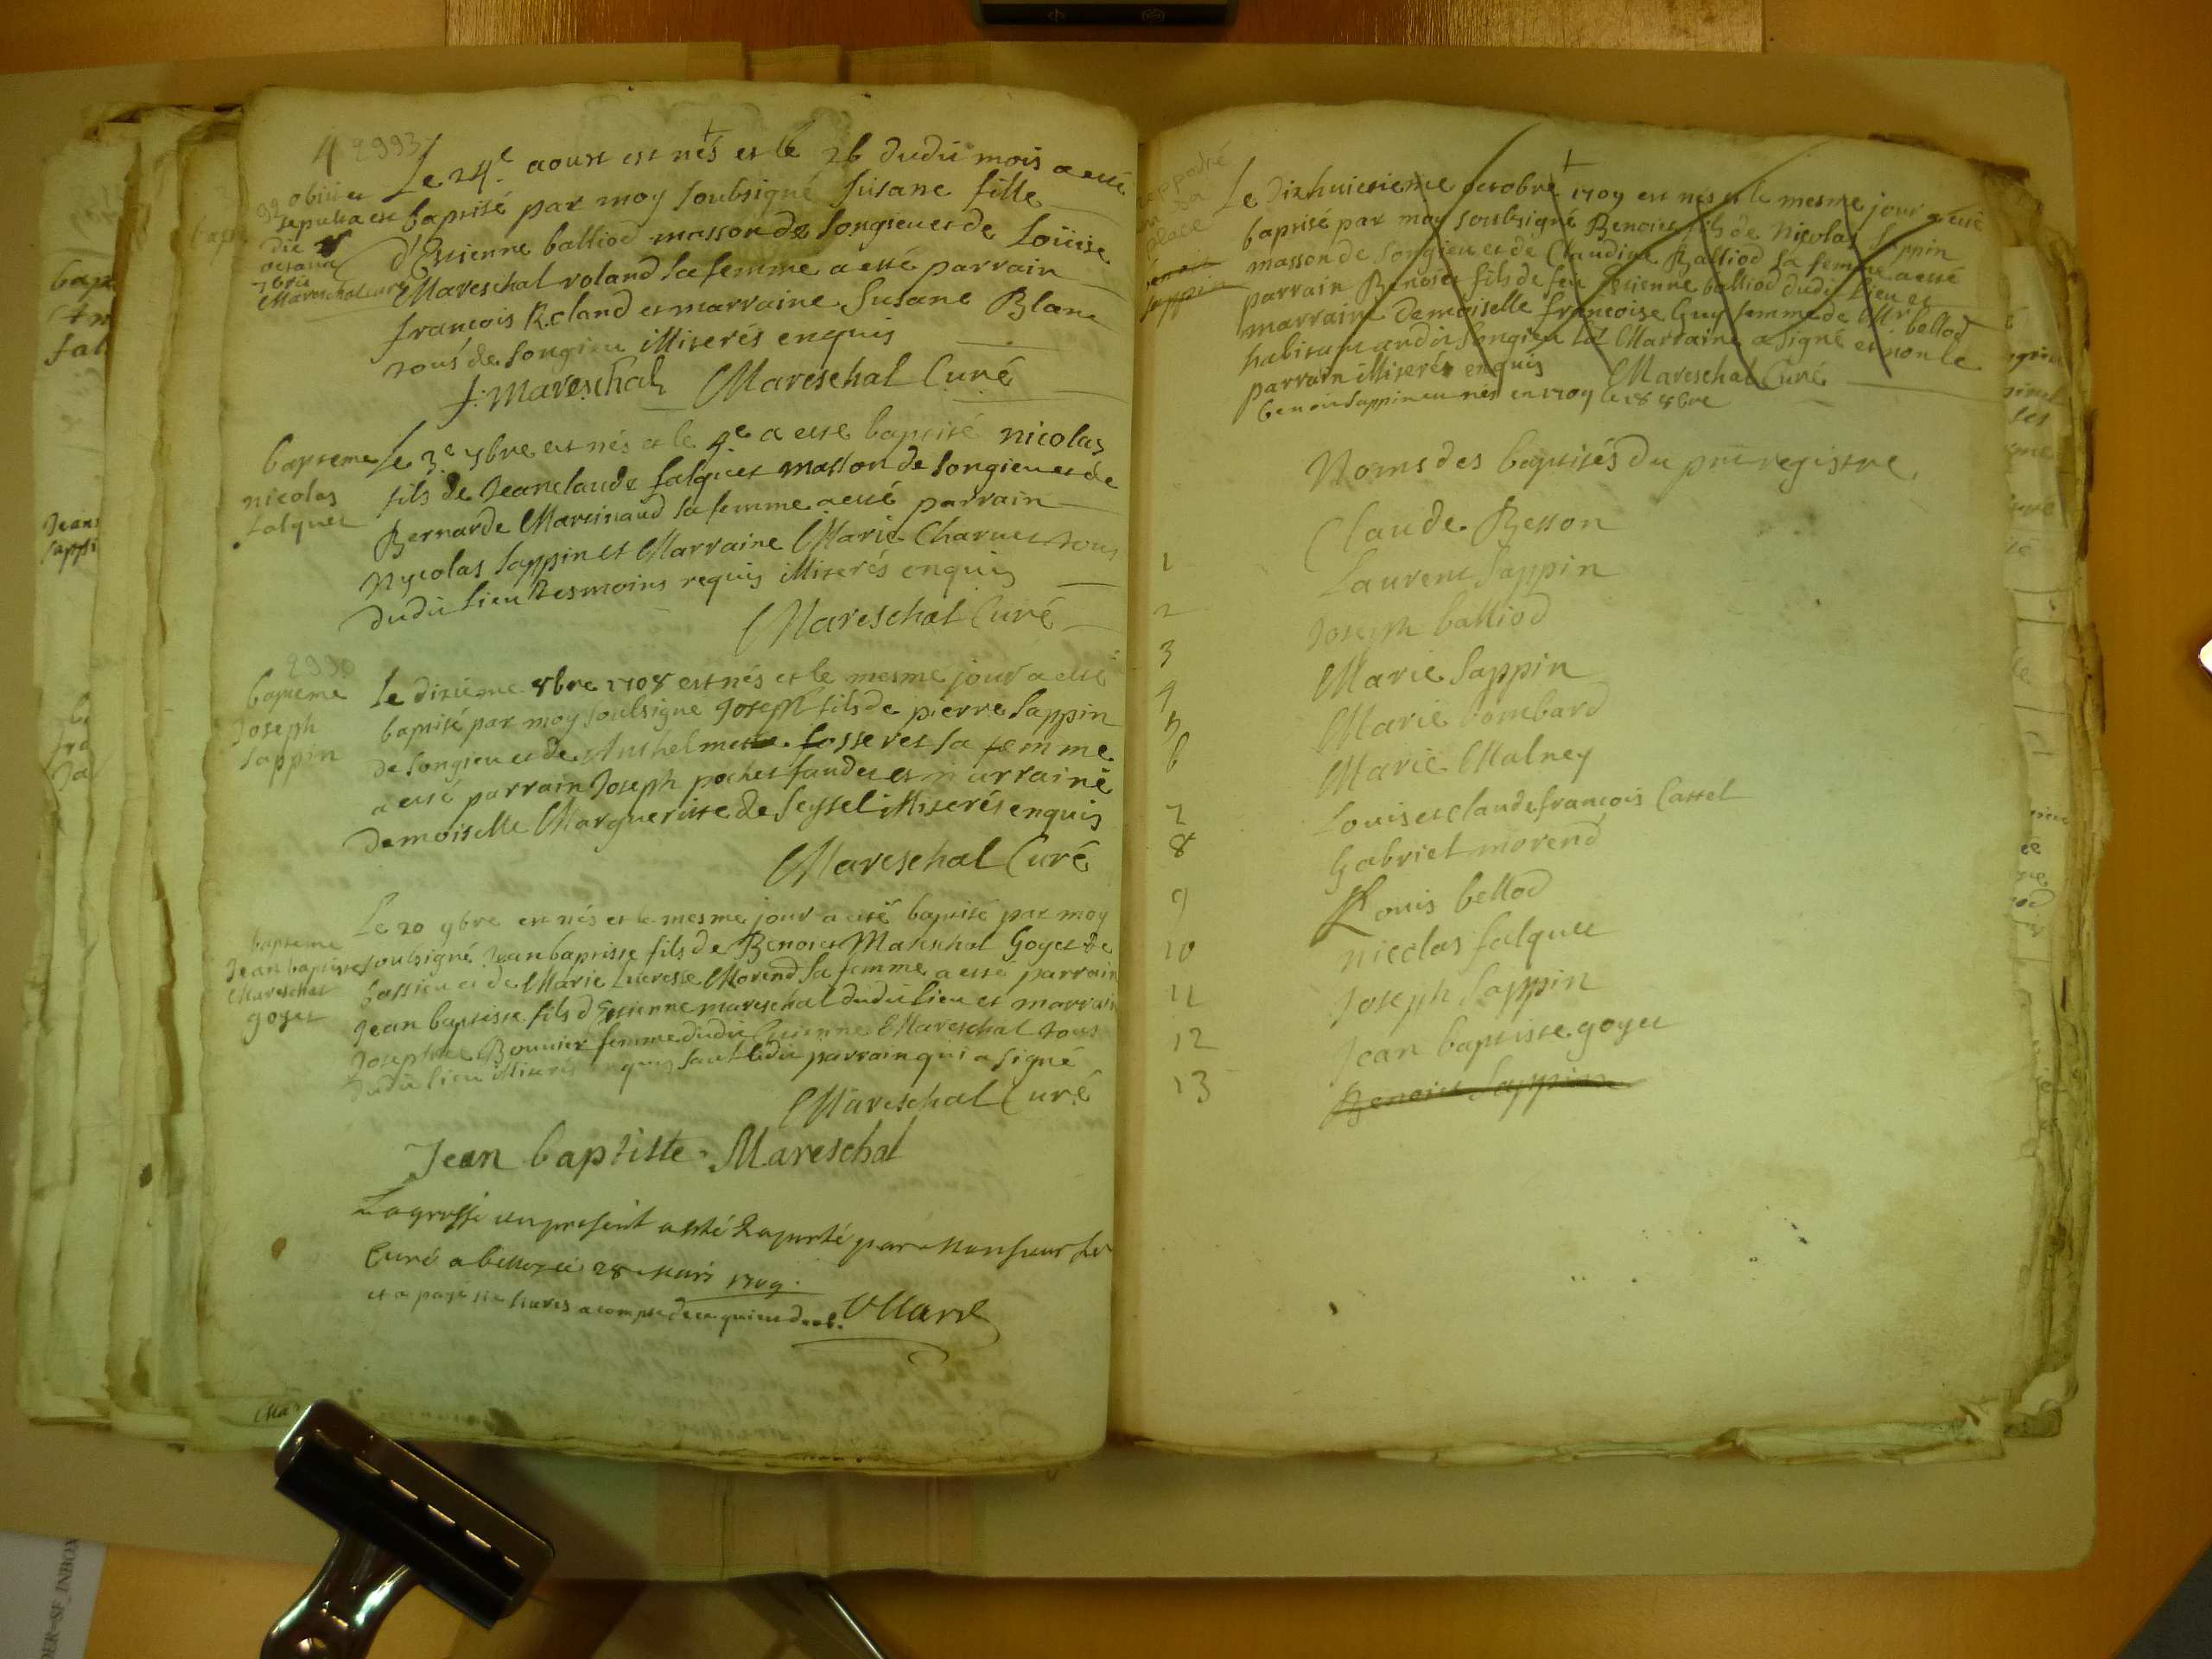 4 2993
Le 24e. aoust est nés et le 26 dudit mois a esté
baptisé par moy soubsigné Susane fille
d'Estienne balliod masson de Songieu et de Loüise
Mareschal roland sa femme a esté parrain
francois Roland et marraine Susane Blanc
tous de Songieu illiterés enquis
f. Mareschal Mareschal Curé
obiit et
sepulta est
die
octava
7bris
Mareschal curé
bapteme
nicolas
falquet
Le 3e. 7bre est nés et le 4e a esté baptisé nicolas
fils de Jeanclaude falquet masson de Songieu et de
Bernarde Martinaud sa femme a esté parrain
Nycolas Sappin et Marraine Marie Charvet tous
dudit lieu tesmoins requis illiterés enquis
Mareschal Curé
bapteme
Joseph
Sappin
Le dixieme 8bre 1708 est nés et le mesme jour a esté
baptisé par moy soubsigné Joseph fils de pierre Sappin
de Songieu et de Anthelmette fosseret sa femme
a esté parrain Joseph pochet faudet et marraine
Demoiselle Margueritte de Seyssel illiterés enquis
Mareschal Curé
bapteme
Jean baptiste
Mareschal
goyet
Le 20 9bre est nés et le mesme jour a esté baptisé par moy
soubsigné Jean baptiste fils de Benoict Mareschal Goyet de
bassieu et de Marie Lucresse Morend sa femme a esté parrain
Jean baptiste fils d'Estienne mareschal dudit lieu et marrain
Josephte Bonnier femme dudit Estienne Mareschal tous
dudit lieu illiterés enquis sauf ledit parrain qui a signé
Mareschal Curé
Jean baptiste Mareschal
La grosse du present a esté Raporté par Monsieur le
Curé a belley ce 28 mars 1709
et a payé six livres a compte de ce quien doit.
rapporté
en sa
place
benoit
Sappin
Le dixhuictieme octobre 1709 est nés et le mesme jour a esté
baptisé par moy soubsigné Benoict fils de Nicolas Sappin
masson de Songieu et de Claudine Balliod sa femme a esté
parrain Benoict fils de feu Estienne balliod dudit lieu et
marraine Demoiselle francoise Guy femme de Mr bellod
habitant audit Songieu Lad Marraine a signé et non le
parrain illiterés enquis Mareschal Curé
benoit Sappin est nés en 1709 le 18 8bre
Noms des baptisés du pnt registre
Claude Besson
1 Laurent Sappin
2 Joseph balliod
3 Marie Sappin
4 Marie Lombard
5
6 Marie Malney
7 Louis et claudefrancois Cattel
8 Gabriel morend
9 Louis bellod
10 nicolas falquet
11 Joseph Sappin
12 Jean baptiste goyet
13 Benoict Sappin